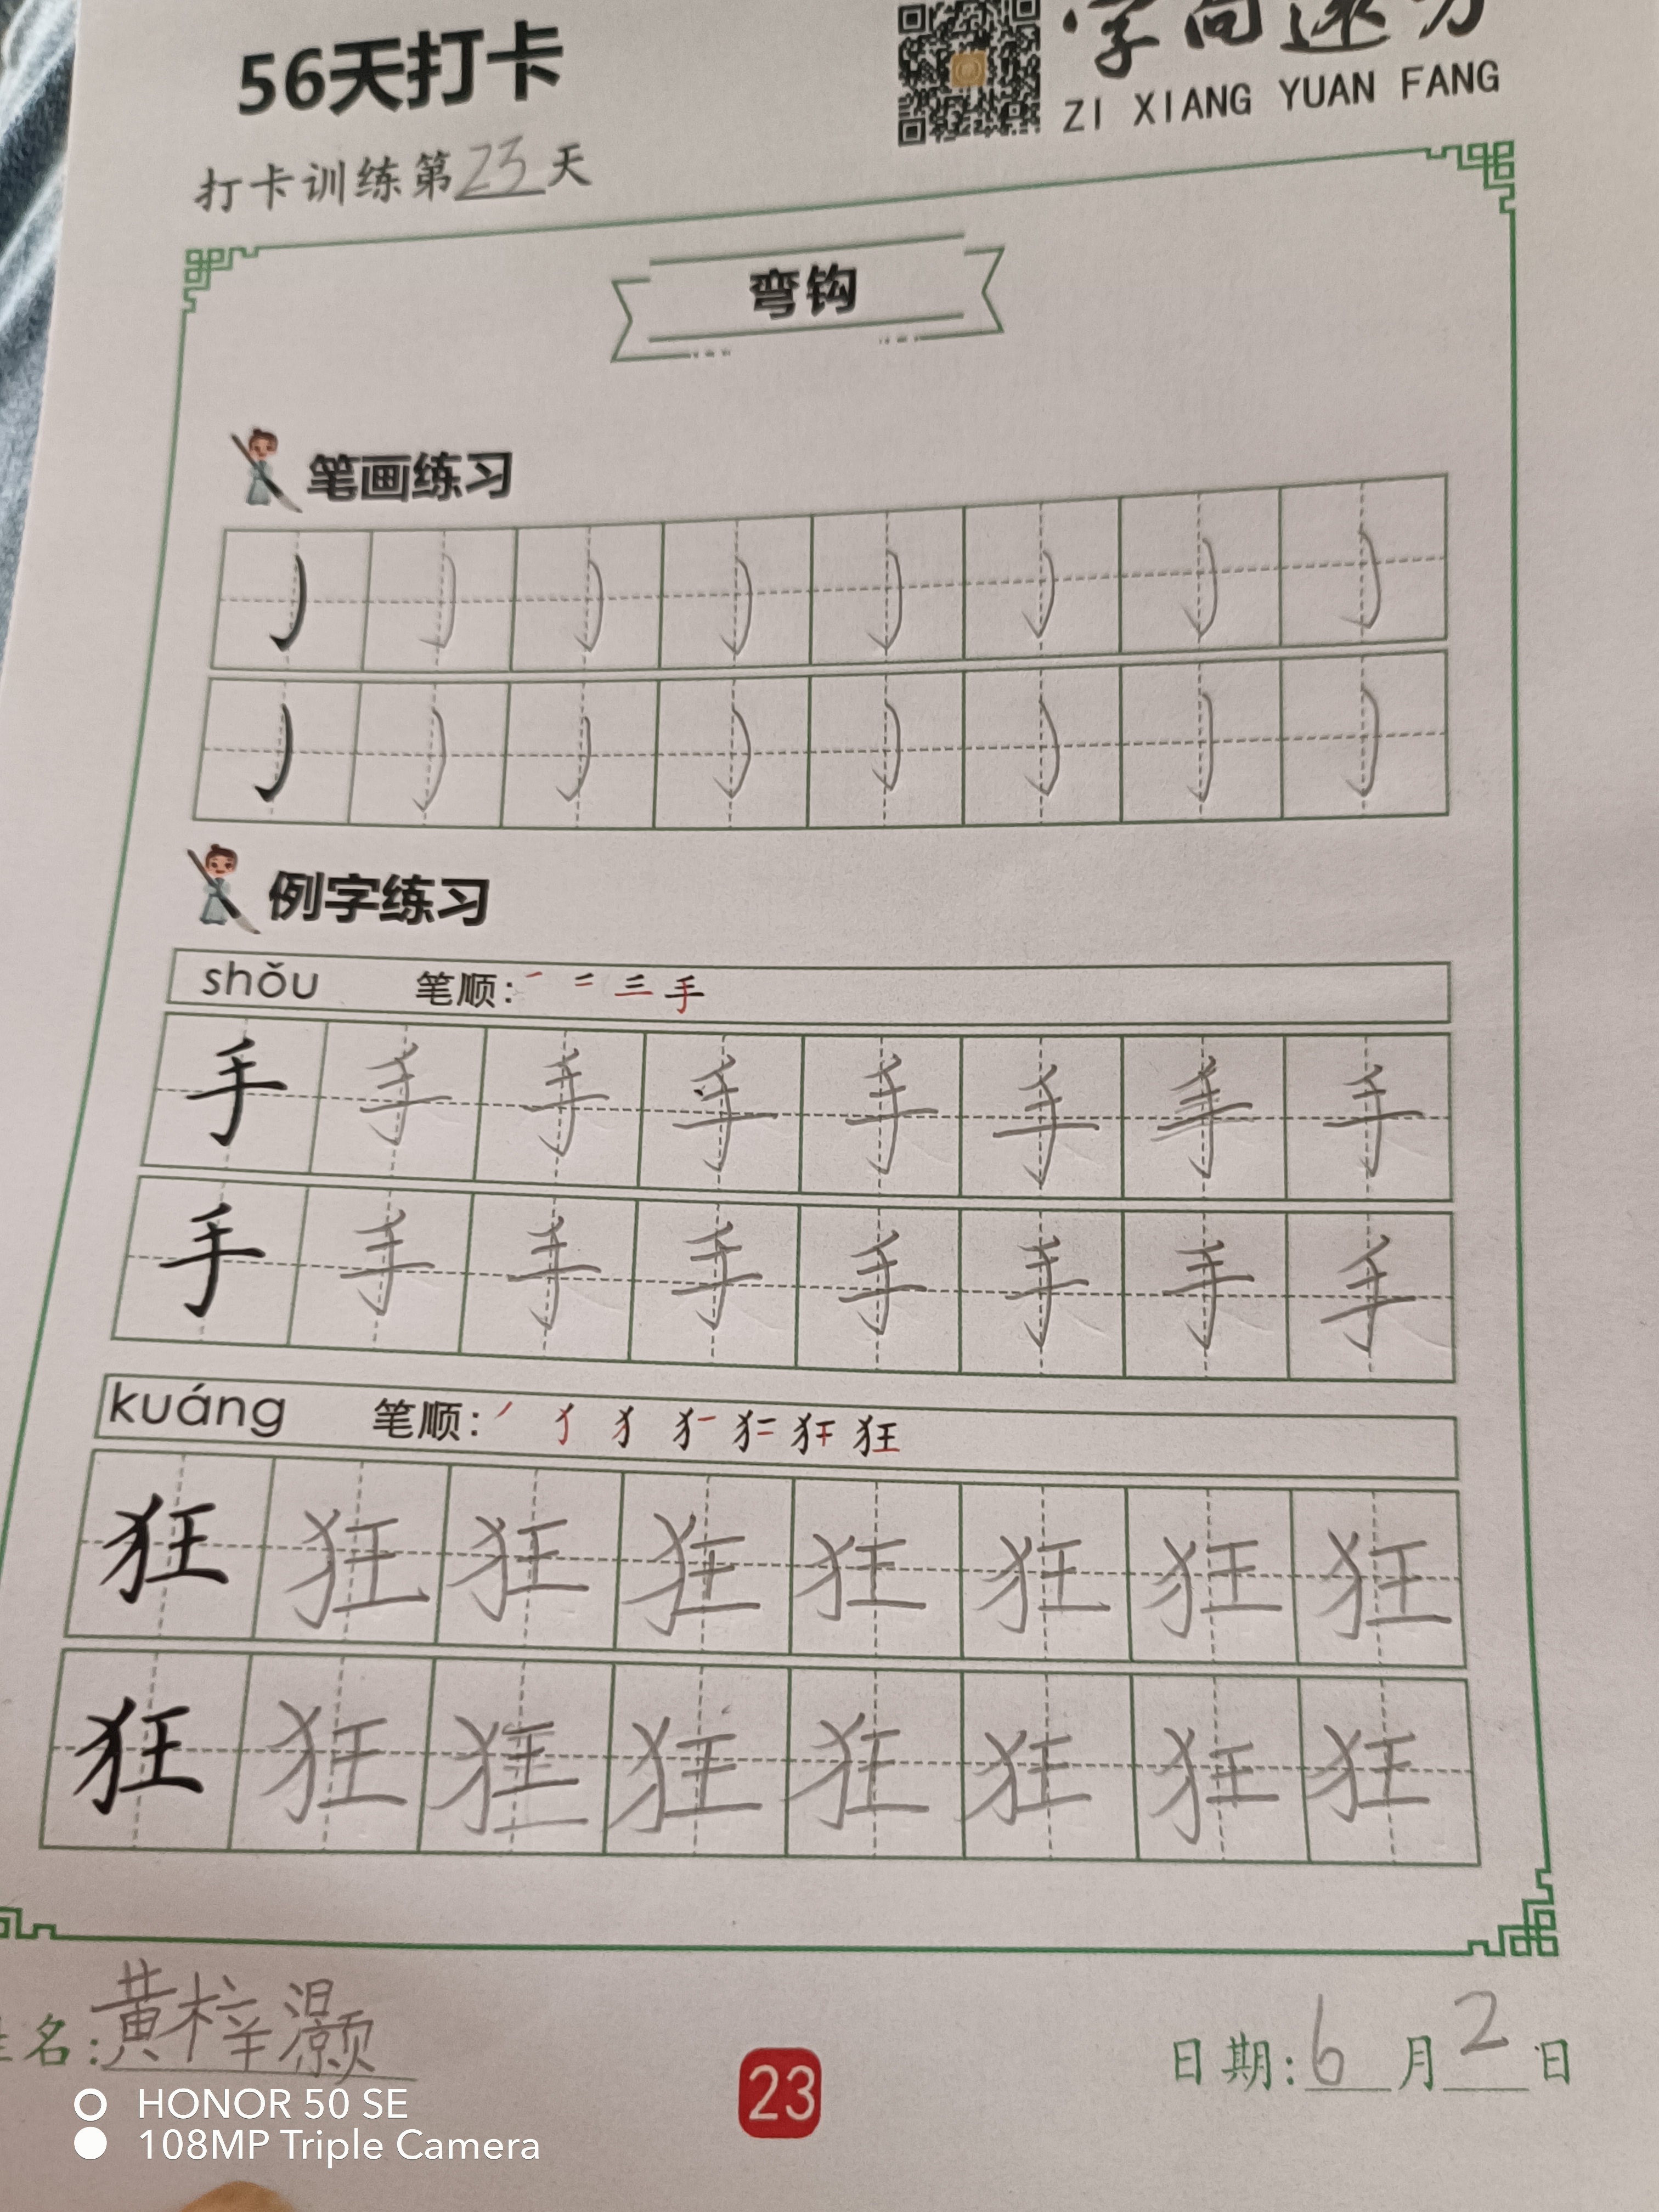 56天打卡
字向远方
ZI XIANG YUAN FANG
打卡训练第23天
弯钩
笔画练习
例字练习
shǒu 笔顺: 一 二 三 手
手 手 手 手 手 手 手 手
手 手 手 手 手 手 手 手
kuáng 笔顺:
狂 狂 狂 狂 狂 狂 狂 狂
狂 狂 狂 狂 狂 狂 狂 狂
姓名:黄梓灏
日期:6月2日
23
HONOR 50 SE
108MP Triple Camera